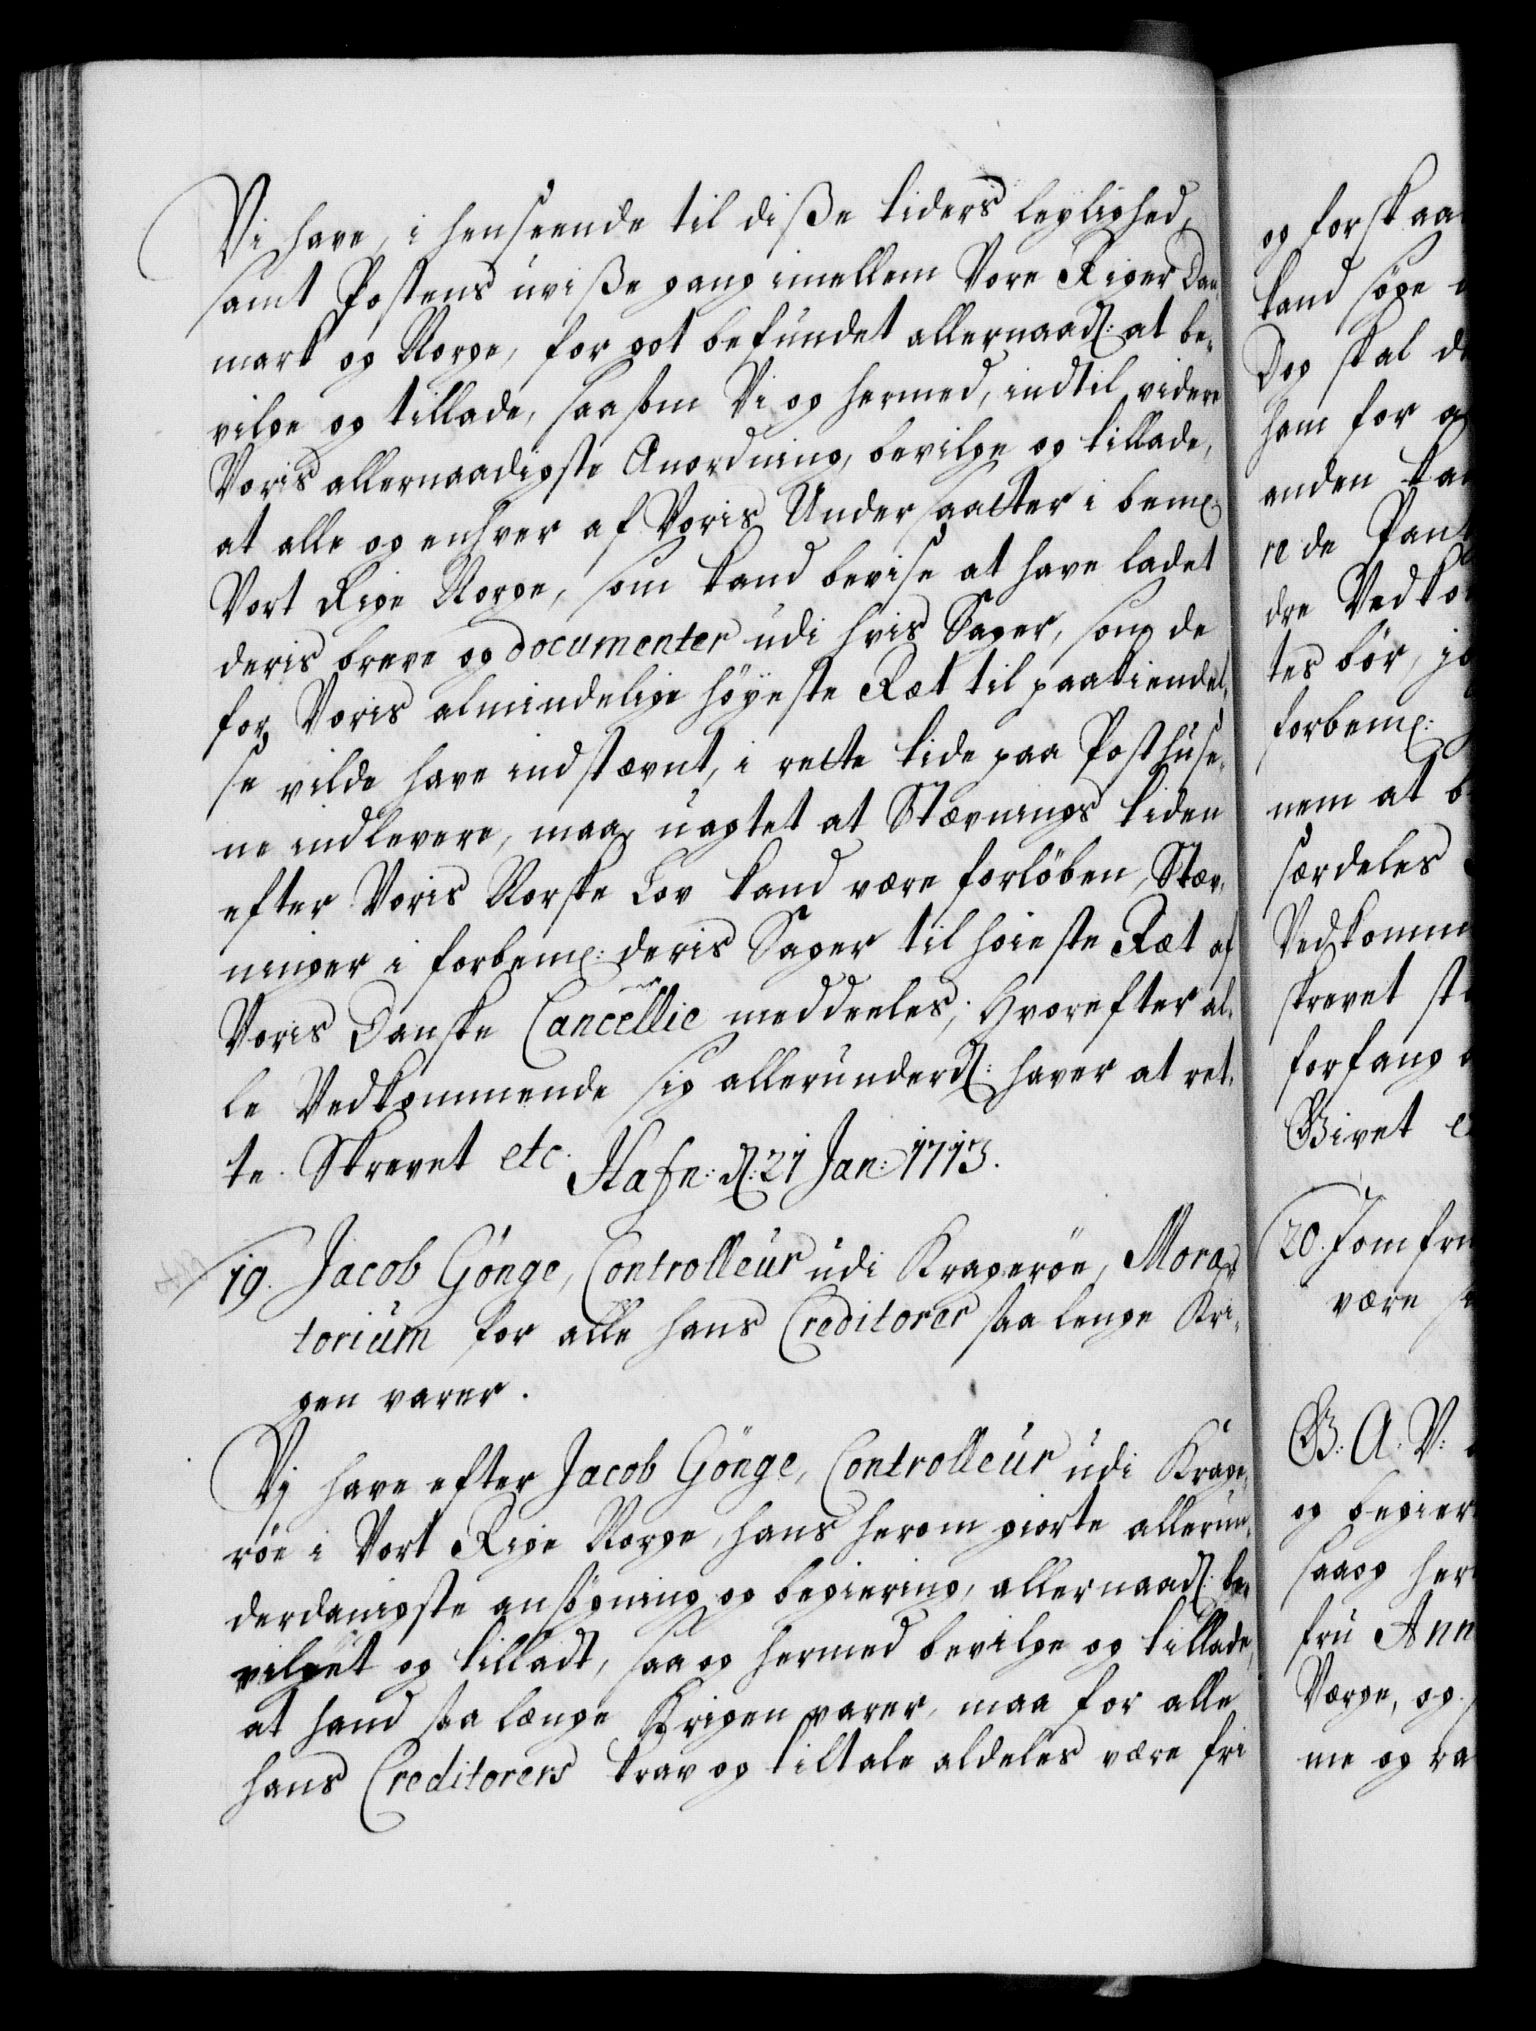 Vi have, i henseende til diße tiders leylighed,
samt Postens uviße gang imellem Vore Riger Dan„
mark og Norge, for got befundet allernaad: at be„
vilge og tillade, saasom Vi og hermed, indtil videre
Voris allernaadigste Anordning, bevilge og tillade,
at alle og enhver af Voris Undersaatter i bem:
Vort Rige Norge, som kand bevise at have ladet
deris breve og documenter udi hvis Sager, som de
for Voris almindelige höyeste Ræt til paakiendel„
se vilde have indstævnt, i rette tide paa Posthuse„
ne indlevere, maa, uagtet at Stævnings tiden
efter Voris Norske Lov kand være forlöben, Stæv„
ninger i forbem: deris Sager til höieste Ræt af
Voris Danske Cancellie meddeeles; Hvorefter al„
le Vedkommende sig allerunderd: haver at ret„
te. Skrevet etc. Hafn: d: 21 Jan: 1713.
19. Jacob Gönge, Controlleur udi Kragerøe, Mora„
torium for alle hans Creditorer saa lenge Kri„
gen varer.
Vj have efter Jacob Gönge, Controlleur udi Krage„
røe i Vort Rige Norge, hans herom giorte allerun„
derdanigste ansögning og begiering, allernaad: be„
vilget og tilladt, saa og hermed bevilge og tillade,
at hand saa længe Krigen varer, maa for alle
hans Creditorers krav og tiltale aldeles være fri
og forskaa
kand söge
Dog skal d
ham for
anden
rede Pant
dre Vedko
tes bör,
forbem:
nem at b
særdeles
Vedkomm
skrevet
forfang
Givet
20. Jomfru
være
G: A: V:
og begier
saa og her
fru Ann
Værge, og
me og ra